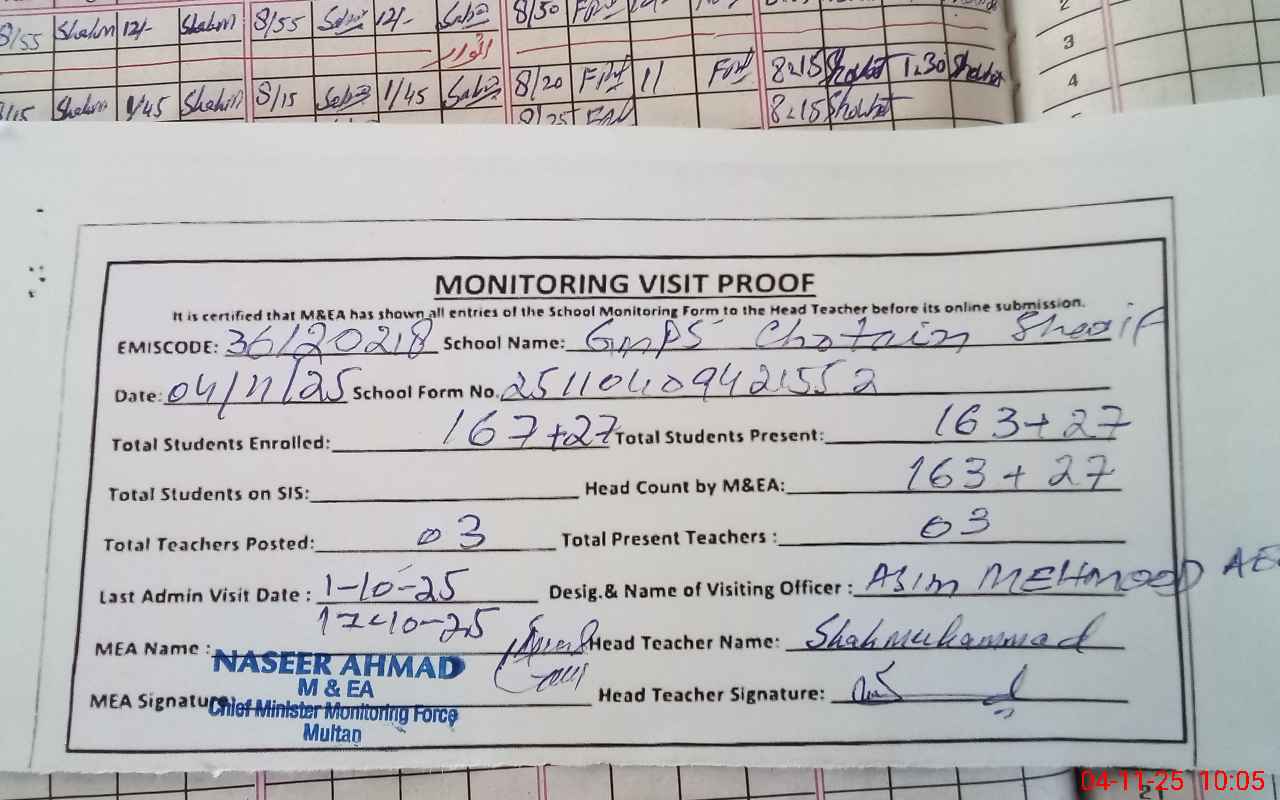 8/55 Shahm 12/- Shahm 8/55 Sabz 12/- Sabz 8/50
اتوار
3
8/15 Shahm 1/45 Shahm 8/15 Sabz 1/45 Sabz 8/20 11 8.15 Shoukat 1.30 Shoukat 4
8/25 8.15 Shoukat
MONITORING VISIT PROOF
It is certified that M&EA has shown all entries of the School Monitoring Form to the Head Teacher before its online submission.
EMISCODE: 36120218 School Name: GMPS Chotain Sharif
Date: 04/11/25 School Form No. 25110409421552
Total Students Enrolled: 167+27 Total Students Present: 163+27
Total Students on SIS: Head Count by M&EA: 163 + 27
Total Teachers Posted: 03 Total Present Teachers : 03
Last Admin Visit Date : 1-10-25 Desig.& Name of Visiting Officer : Asim MEHMOOD
17-10-25
MEA Name : Head Teacher Name: Shah muhammad
NASEER AHMAD
M & EA
MEA Signature: Head Teacher Signature:
Chief Minister Monitoring Force
Multan
04-11-25 10:05
21